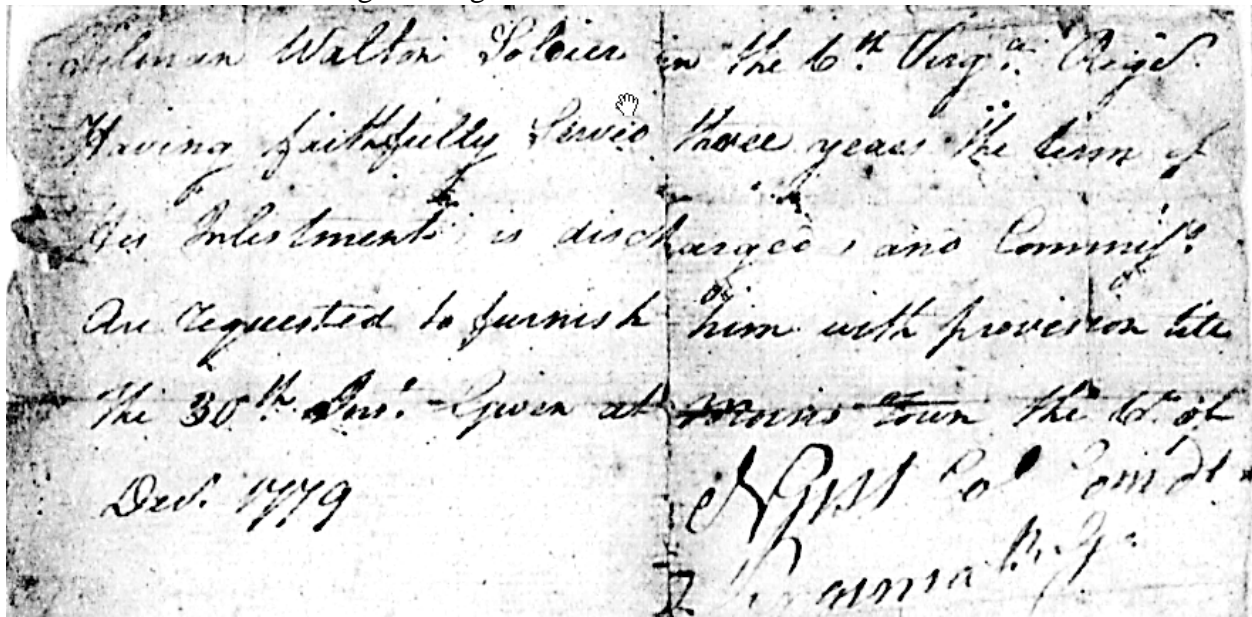 Tilman Walton Soldier in the 6th Virga. Regt.
Having faithfully Servd three years the term of
His Inlistment is discharged and Commiss.
Are requested to furnish him with provision till
The 30th Given at Morris town the 6th of
Decr. 1779
Col Comdt